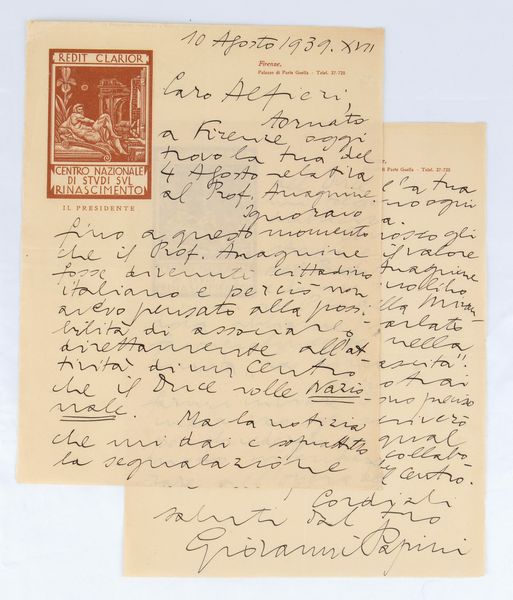 10 Agosto 1939. XVII
REDIT CLARIOR
CENTRO NAZIONALE
DI STVDI SVL
RINASCIMENTO
IL PRESIDENTE
Firenze,
Palazzo di Parte Guelfa - Telef. 27-725
Caro Alfieri,
tornato
a Firenze oggi
trovo la tua del
4 Agosto relativa
al Prof. Anagnine.
Ignoravo
fino a questo momento
che il Prof. Anagnine
fosse divenuto cittadino
italiano e perciò non
avevo pensato alla pos-
sibilità di associarlo
direttamente all'at-
tività di un Centro
che il Duce volle Nazio-
nale.
Ma la notizia
che mi dai e soprattutto
la segnalazione
Guelfa - Telef. 27-725
tua
il valore
Anagnine
nella
preciso
collabo-
Centro.
Cordiali
saluti dal tuo
Giovanni Papini